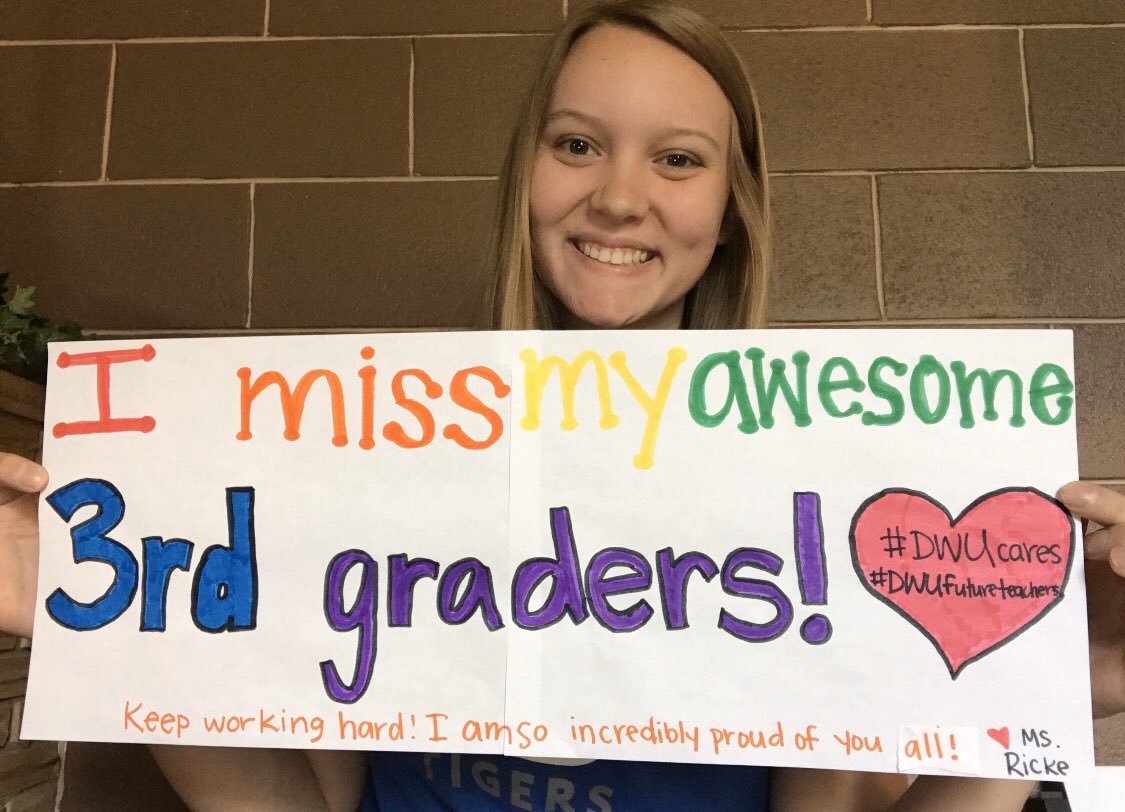 I miss my awesome
3rd graders!
#DWUcares
#DWUfutureteachers
Keep working hard! I am so incredibly proud of you all!
Ms.
Ricke
TIGERS